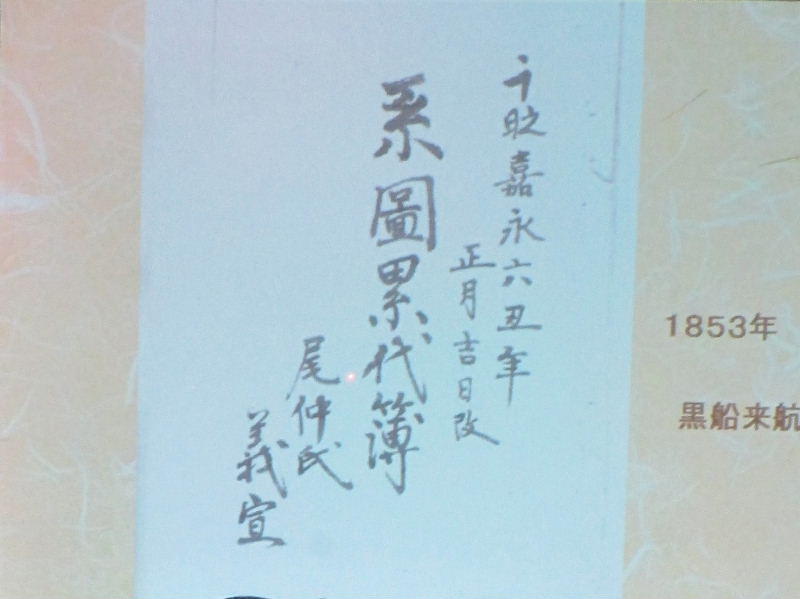 于时嘉永六丑年
正月吉日改
系圖累代簿
尾仲氏
義宣
1853年
黒船来航